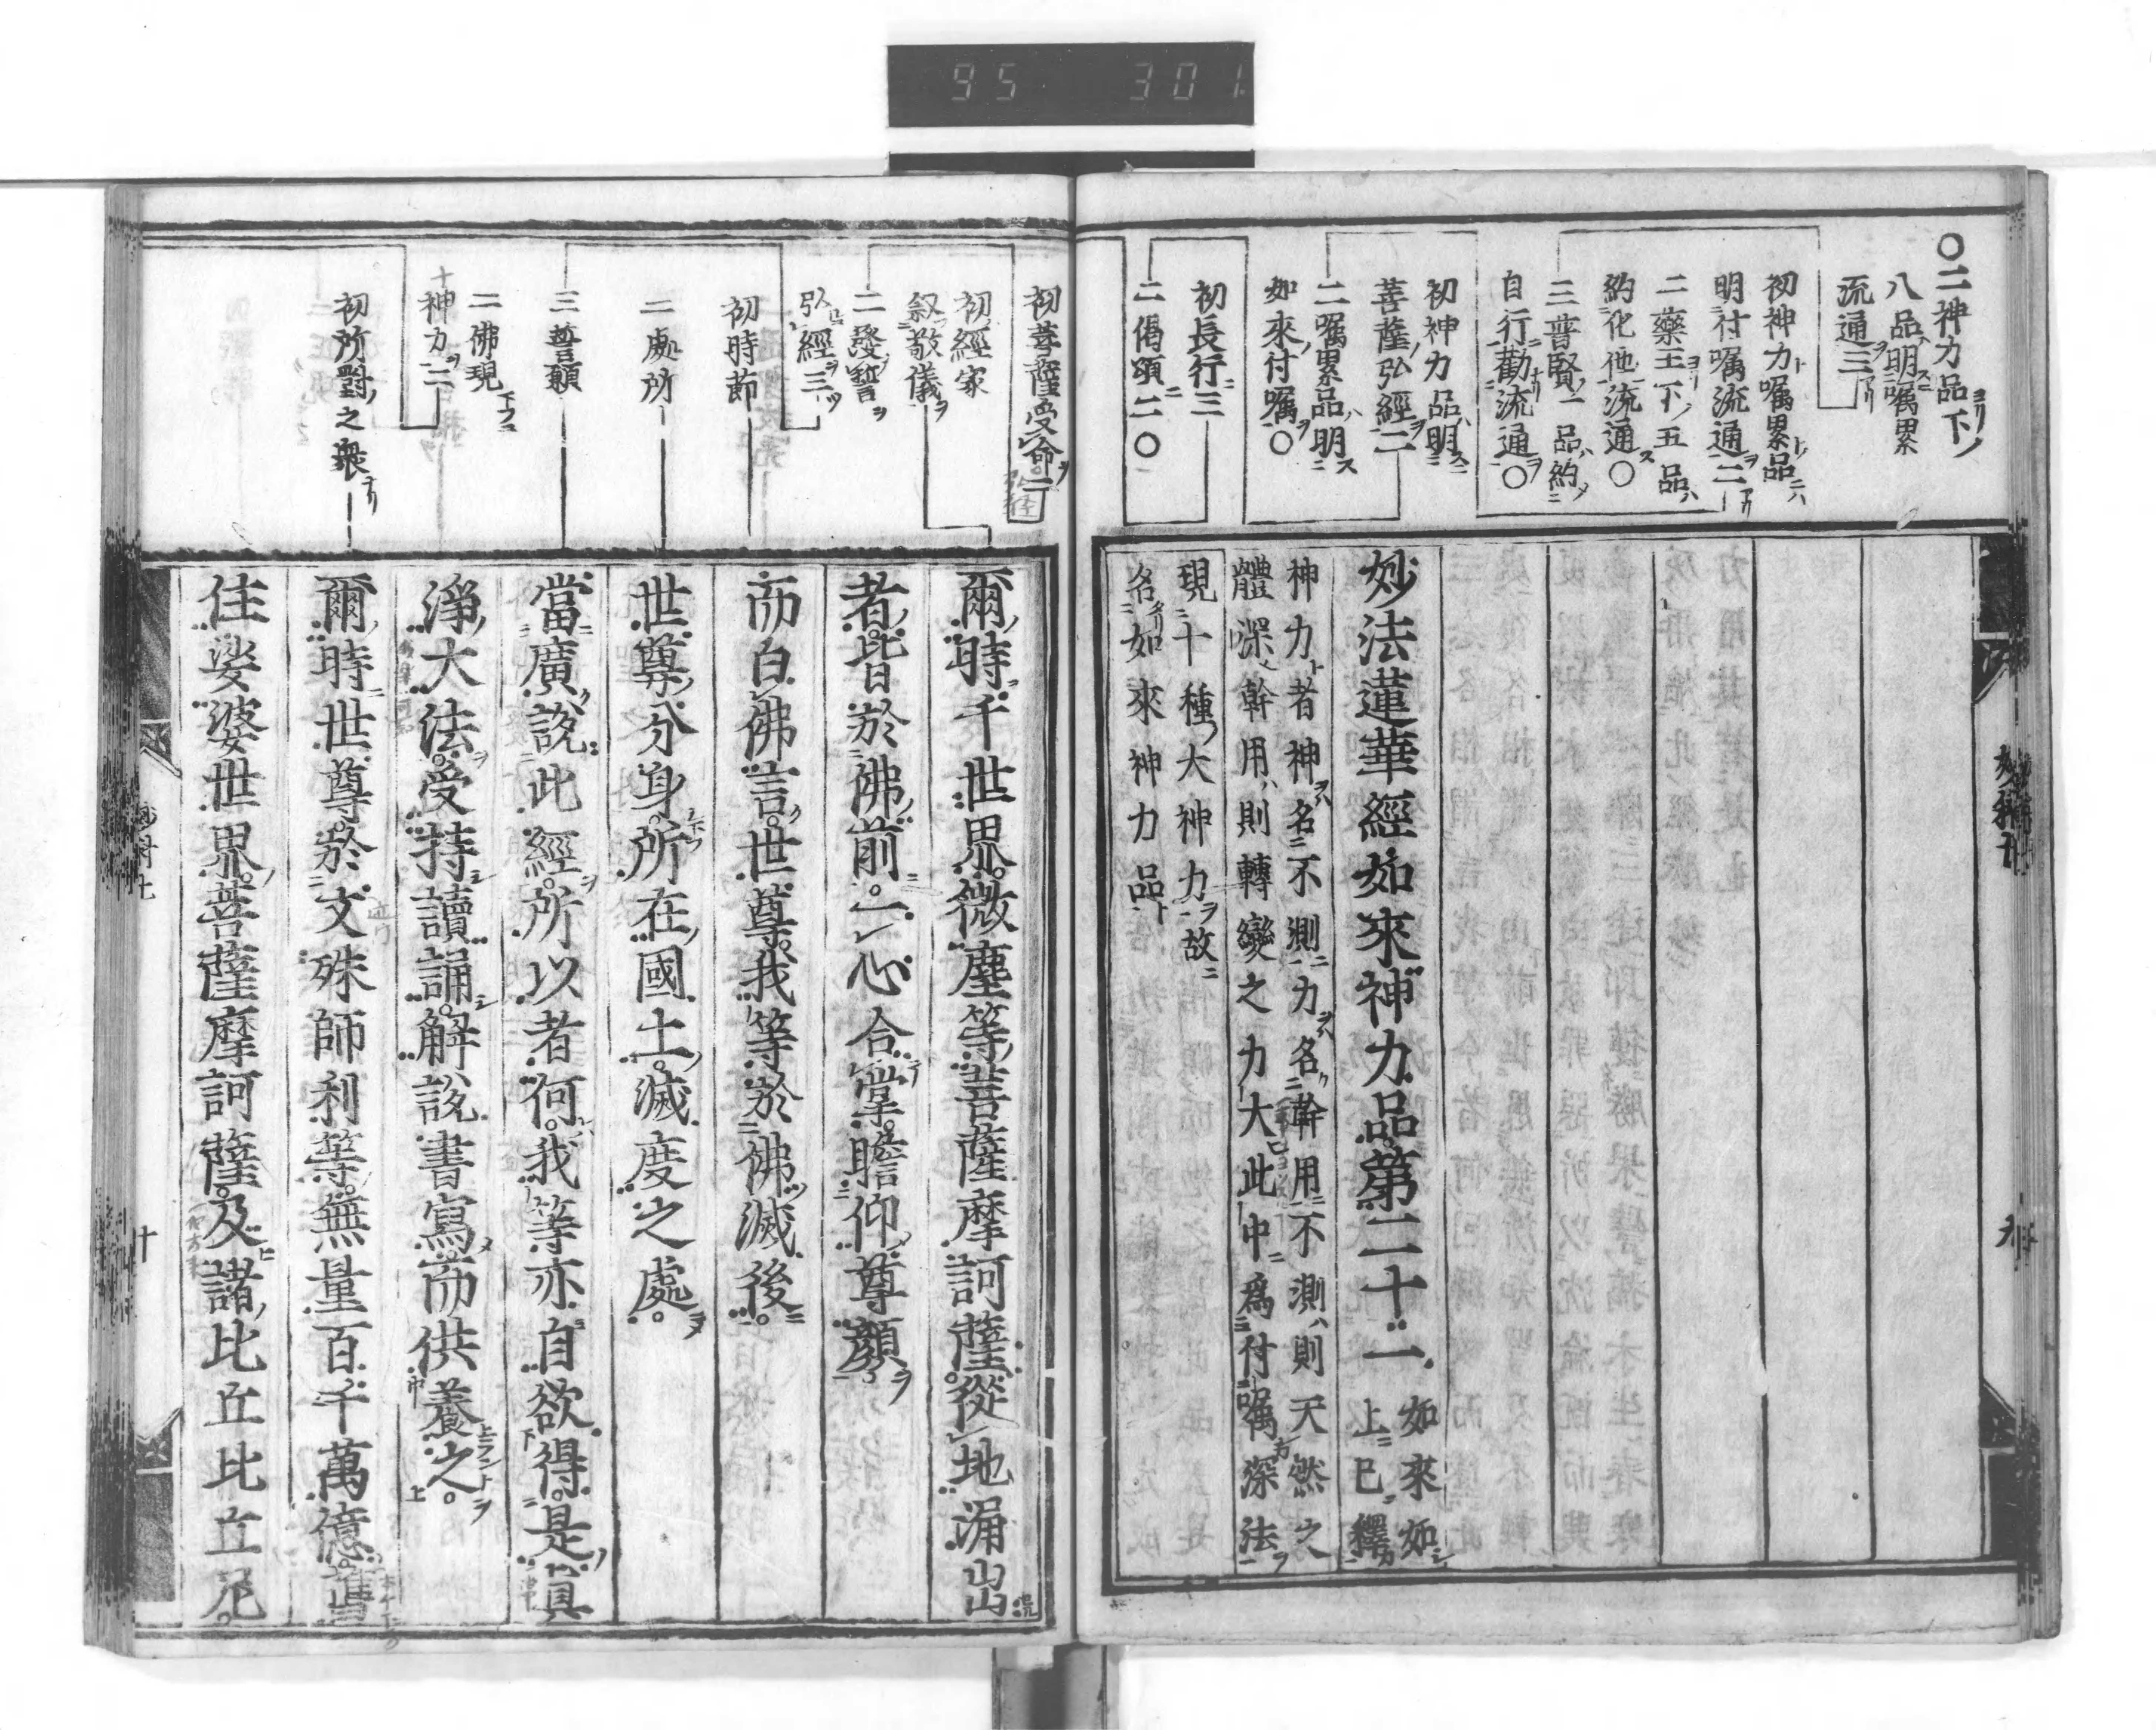 95 301
〇二神力品下
八品明囑累
流通三
初神力囑累品
明付囑流通二
二藥王下五品
約化他流通〇
三普賢一品約
自行勸流通〇
初神力品明
菩薩弘經二
二囑累品明
如來付囑〇
初長行三
二偈頌二〇
妙法蓮華經如來神力品第二十一
如來如
上已釋
神力者神名不測力名幹用不測則天然之
體深幹用則轉變之力大此中為付囑深法
現十種大神力故
名如來神力品
初菩薩受命二
初經家
叙敬儀
二發誓
弘經三
初時節
二處所
三誓願
二佛現
十神力二
初所對之衆
爾時千世界微塵等菩薩摩訶薩從地涌出
者皆於佛前一心合掌瞻仰尊顏
而白佛言世尊我等於佛滅後
世尊分身所在國土滅度之處
當廣說此經所以者何我等亦自欲得是真
淨大法受持讀誦解說書寫而供養之
爾時世尊於文殊師利等無量百千萬億舊
住娑婆世界菩薩摩訶薩及諸比丘比丘尼
十